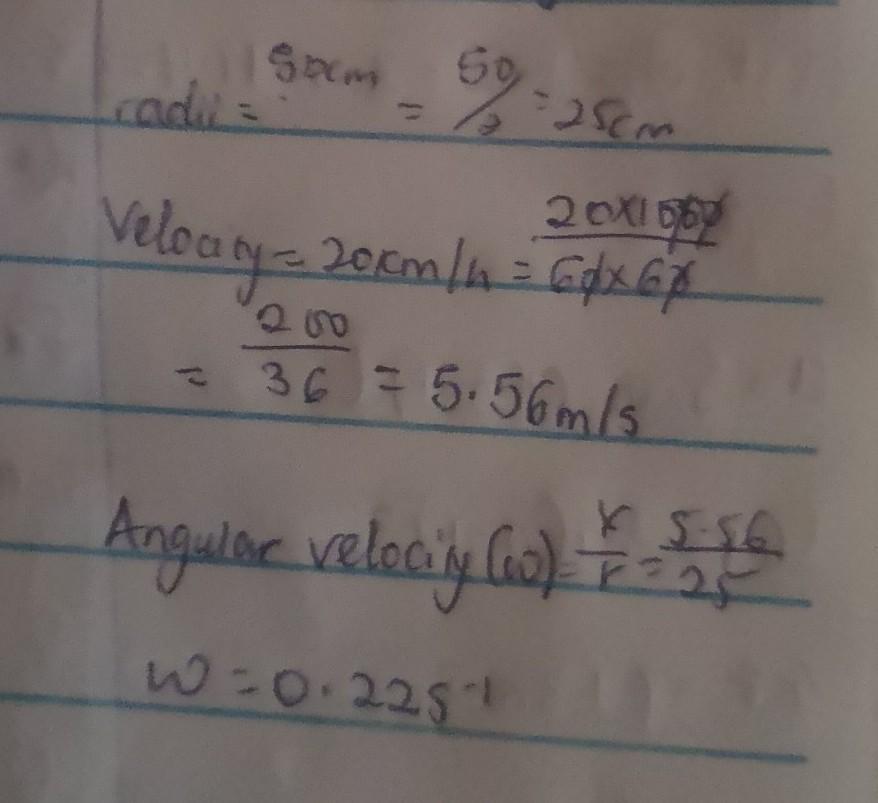 radii = 50cm = 50/2 = 25cm
Velocity = 20km/h = 20x1000/60x60
= 200/36 = 5.56m/s
Angular velociy (ω) = v/r = 5.56/25
ω = 0.22s⁻¹